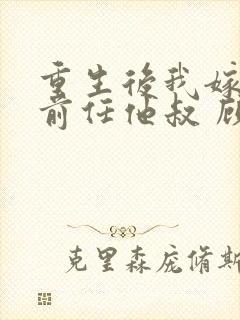 重生後我嫁
前任他叔 顾
克里森庞脩斯